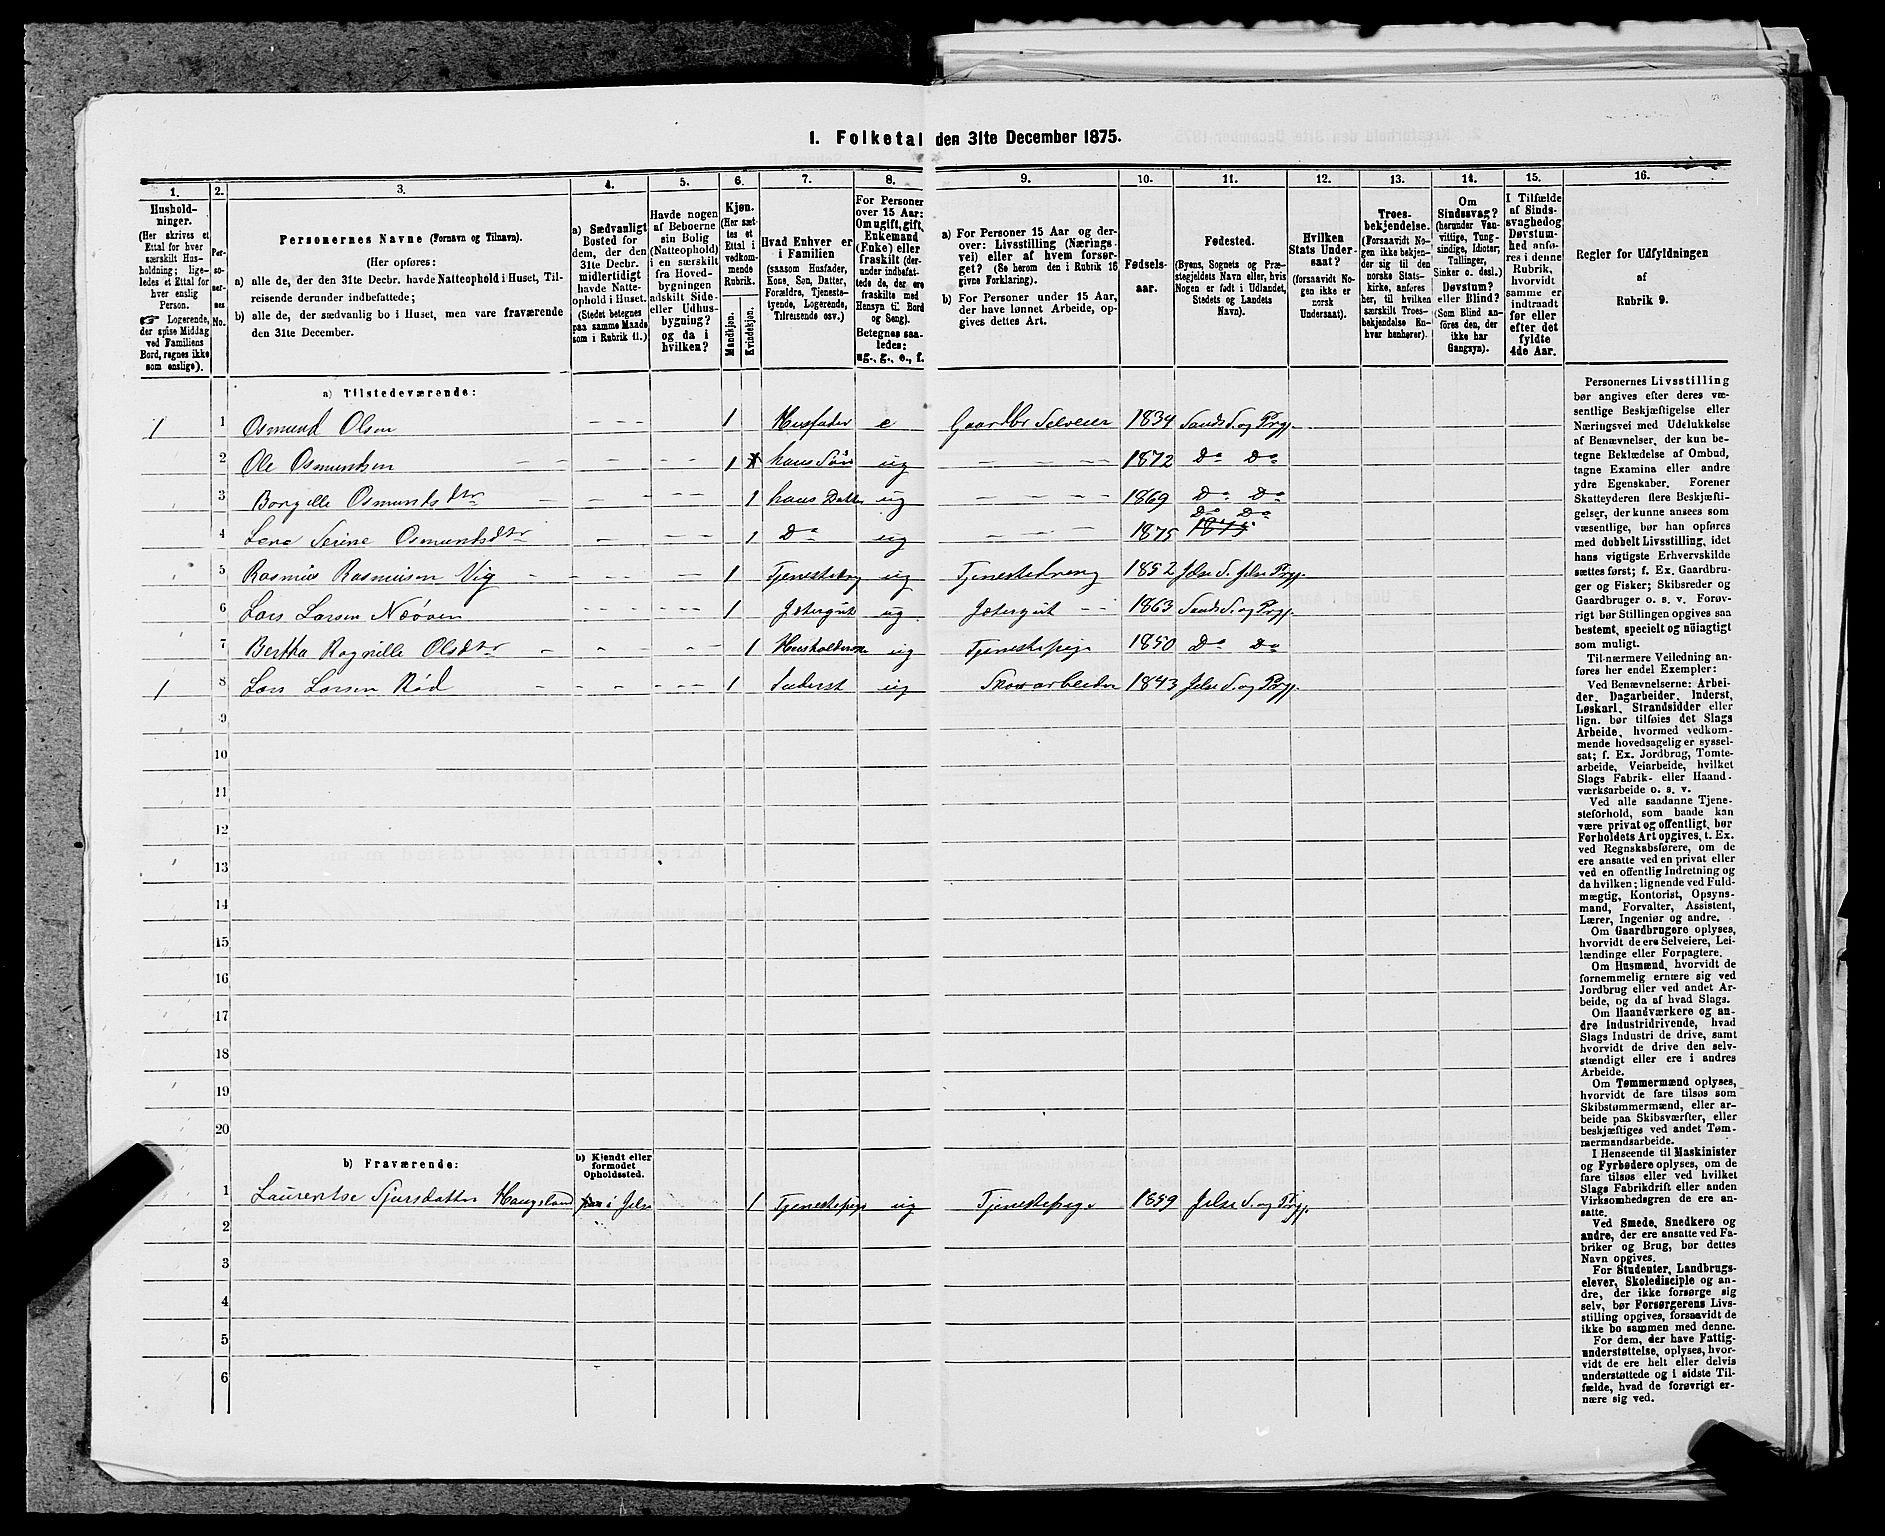 1. Folketal den 31te December 1875.
1.
2.
3.
4.
5.
6.
7.
8.
9.
10.
11.
12.
13.
14.
15.
16.
Hushold-
ninger.
(Her skrives et
Ettal for hver
særskilt Hus-
holdning; lige-
ledes et Ettal for
hver enslig
Person.
☞ Logerende,
der spise Middag
ved Familiens
Bord, regnes ikke
som enslige).
Per-
so-
ner-
nes
No.
Personernes Navne (Fornavn og Tilnavn).
(Her opføres:
a) alle de, der den 31te Decbr. havde Natteophold i Huset, Til-
reisende derunder indbefattede;
b) alle de, der sædvanlig bo i Huset, men vare fraværende
den 31te December.
a) Sædvanligt
Bosted for
dem, der den
31te Decbr.
midlertidigt
havde Natte-
ophold i Huset.
(Stedet betegnes
paa samme Maade
som i Rubrik 11.)
Havde nogen
af Beboerne
sin Bolig
(Natteophold)
i en særskilt
fra Hoved-
bygningen
adskilt Side-
eller Udhus-
bygning?
og da i
hvilken?
Kjøn.
(Her sæt-
tes et
Ettal i
vedkom-
mende
Rubrik.
Mandkjøn.
Kvindekjøn.
Hvad Enhver er
i Familien
(saasom Husfader,
Kone, Søn, Datter,
Forældre, Tjeneste-
tyende, Logerende,
Tilreisende osv.)
For Personer
over 15 Aar:
Om ugift, gift,
Enkemand
(Enke) eller
fraskilt (der-
under indbefat-
tede de, der ere
fraskilte med
Hensyn til Bord
og Seng).
Betegnes saa-
ledes:
ug., g., e., f.
a) For Personer 15 Aar og der-
over: Livsstilling (Nærings-
vei) eller af hvem forsør-
get? (Se herom den i Rubrik 16
givne Forklaring).
b) For Personer under 15 Aar,
der have lønnet Arbeide, op-
gives dettes Art.
Fødsels-
aar.
Fødested.
(Byens, Sognets og Præ-
stegjeldets Navn eller, hvis
Nogen er født i Udlandet,
Stedets og Landets
Navn).
Hvilken
Stats Under-
saat?
(forsaavidt No-
gen ikke er
norsk
Undersaat).
Troes-
bekjendelse.
(Forsaavidt No-
gen ikke bekjen-
der sig til den
norske Stats-
kirke, anføres
her, til hvilken
særskilt Troes-
bekjendelse En-
hver henhører).
Om
Sindssvag?
(herunder Van-
vittige, Tung-
sindige, Idioter,
Tullinger,
Sinker o. desl.)
Døvstum?
eller Blind?
(Som Blind an-
føres den, der
ikke har
Gangsyn).
I Tilfælde
af Sinds-
svaghed og
Døvstum-
hed anfø-
res i denne
Rubrik,
hvorvidt
samme er
indtraadt
før eller
efter det
fyldte
4de Aar.
Regler for Udfyldningen
af
Rubrik 9.
a) Tilstedeværende:
1 1 Osmund Olsen 1 Husfader e Gaardbr Selveier 1834 Sands S. og Prgj.
2 Ole Osmundsen 1 hans Søn ug 1872 Do Do
3 Borgille Osmundsdtr 1 hans Datter ug 1869 Do Do
4 Lena Serine Osmundsdtr 1 Do ug 1875 1875 Do Do
5 Rasmus Rasmusen Vig 1 Tjenestedrg ug Tjenestedreng 1852 Jelse S. Jelse Prgj.
6 Lars Larsen 1 Jætergut ug Jætergut 1863 Sands S. og Prgj.
7 Bertha Ragnille Olsdtr 1 Husholderske ug Tjenestepige 1850 Do Do
1 8 Lars Larsen Rød 1 Inderst ug Skovarbeider 1843 Jelse S. og Prgj.
9
10
11
12
13
14
15
16
17
18
19
20
b) Fraværende:
b) Kjendt eller
formodet
Opholdssted.
1 Laurentse Sjursdatter Haugsland i Jelse 1 Tjenestepige ug Tjenestepige 1859 Jelse S. og Prgj.
2
3
4
5
6
Personernes Livsstilling
bør angives efter deres væ-
sentlige Beskjæftigelse eller
Næringsvei med Udelukkelse
af Benævnelser, der kun be-
tegne Beklædelse af Ombud,
tagne Examina eller andre
ydre Egenskaber. Forener
Skatteyderen flere Beskjæfti-
gelser, der kunne ansees som
væsentlige, bør han opføres
med dobbelt Livsstilling, idet
hans vigtigste Erhvervskilde
sættes først; f. Ex. Gaardbru-
ger og Fisker; Skibsreder og
Gaardbruger o. s. v. Forøv-
rigt bør Stillingen opgives saa
bestemt, specielt og nøiagtigt
som muligt.
Til nærmere Veiledning an-
føres her endel Exempler:
Ved Benævnelserne: Arbei-
der, Dagarbeider, Inderst,
Løskarl, Strandsidder eller
lign. bør tilføies det Slags
Arbeide, hvormed vedkom-
mende hovedsagelig er syssel-
sat; f. Ex. Jordbrug, Tomte-
arbeide, Veiarbeide, hvilket
Slags Fabrik- eller Haand-
værksarbeide o. s. v.
Ved alle saadanne Tjene-
steforhold, som baade kan
være privat og offentligt, bør
Forholdets Art opgives, t. Ex.
ved Regnskabsførere, om de
ere ansatte ved en privat eller
ved en offentlig Indretning og
da hvilken; lignende ved Fuld-
mægtig, Kontorist, Opsyns-
mand, Forvalter, Assistent,
Lærer, Ingeniør og andre.
Om Gaardbrugere oplyses,
hvorvidt de ere Selveiere, Lei-
lændinge eller Forpagtere.
Om Husmænd, hvorvidt de
fornemmelig ernære sig ved
Jordbrug eller ved andet Ar-
beide, og da af hvad Slags.
Om Haandværkere og an-
dre Industridrivende, hvad
Slags Industri de drive, samt
hvorvidt de drive den selv-
stændigt eller ere i andres
Arbeide.
Om Tømmermænd oplyses,
hvorvidt de fare tilsøs som
Skibstømmermænd, eller ar-
beide paa Skibsværfter, eller
beskjæftiges ved andet Tøm-
mermandsarbeide.
I Henseende til Maskinister
og Fyrbødere oplyses, om de
fare tilsøs eller ved hvilket
Slags Fabrikdrift eller anden
Virksomhedsgren de ere an-
satte.
Ved Smede, Snedkere og
andre, der ere ansatte ved Fa-
briker og Brug, bør dettes
Navn opgives.
For Studenter, Landbrugs-
elever, Skoledisciple og an-
dre, der ikke forsørge sig
selv, bør Forsørgerens Livs-
stilling opgives, forsaavidt de
ikke bo sammen med denne.
For dem, der have Fattig-
understøttelse, oplyses, hvor-
vidt de ere helt eller delvis
understøttede og i sidste Til-
fælde, hvad de forøvrigt er-
nære sig ved.